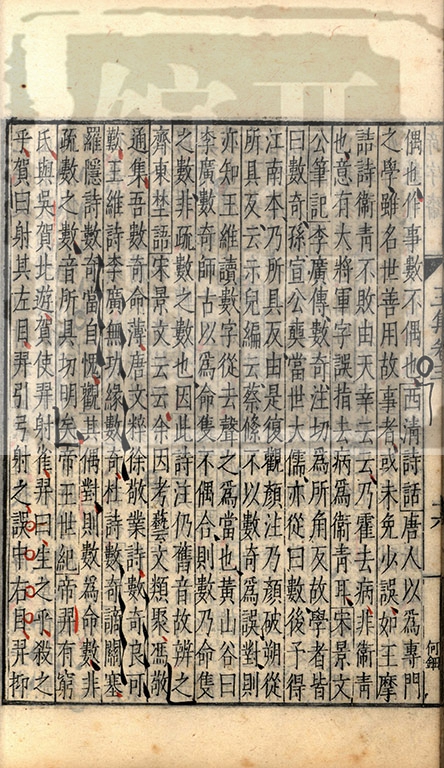 偶也作事數不偶也西清詩話唐人以爲專門
之學雖名世善用故事者或未免少誤如王摩
詰詩衛青不敗由天幸云云乃霍去病非衛青
也意有大將軍字誤指去病爲衛青耳宋景文
公筆記李廣傳數奇注切爲所角反故學者皆
曰數奇孫宣公奭當世大儒亦從曰數後予得
江南本乃所具反由是復觀顏注乃顏破朔從
所具反云示兒編云蔡絛不以數奇爲誤對則
亦知王維讀數字從去聲之爲當也黃山谷曰
李廣數奇師古以爲命隻不偶合則數乃命隻
之數非疏數之數也因此詩注仍舊音故辨之
齊東埜語宋景文云云余因考藝文類聚馮敬
通集吾數奇命薄唐文粹徐敬業詩數奇良可
歎王維詩李廣無功緣數奇杜詩數奇謫關塞
羅隱詩數奇當自愧觀其偶對則數爲命數非
疏數之數音所具切明矣帝王世紀帝羿有窮
氏與吳賀北遊賀使羿射雀羿曰生之乎殺之
乎賀曰射其左目羿引弓射之誤中右目羿抑